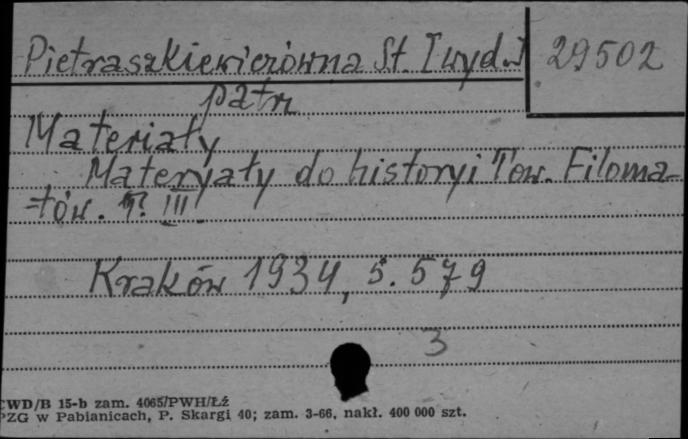 Pietraszkiewiczówna St. [wyd.]
29502
patrz
Materiały
Materyały do historyi Tow. Filoma-
-tów. T. III
Kraków 1934, s. 579
3
CWD/B 15-b zam. 4065/PWH/Łź
PZG w Pabianicach, P. Skargi 40; zam. 3-66, nakł. 400 000 szt.